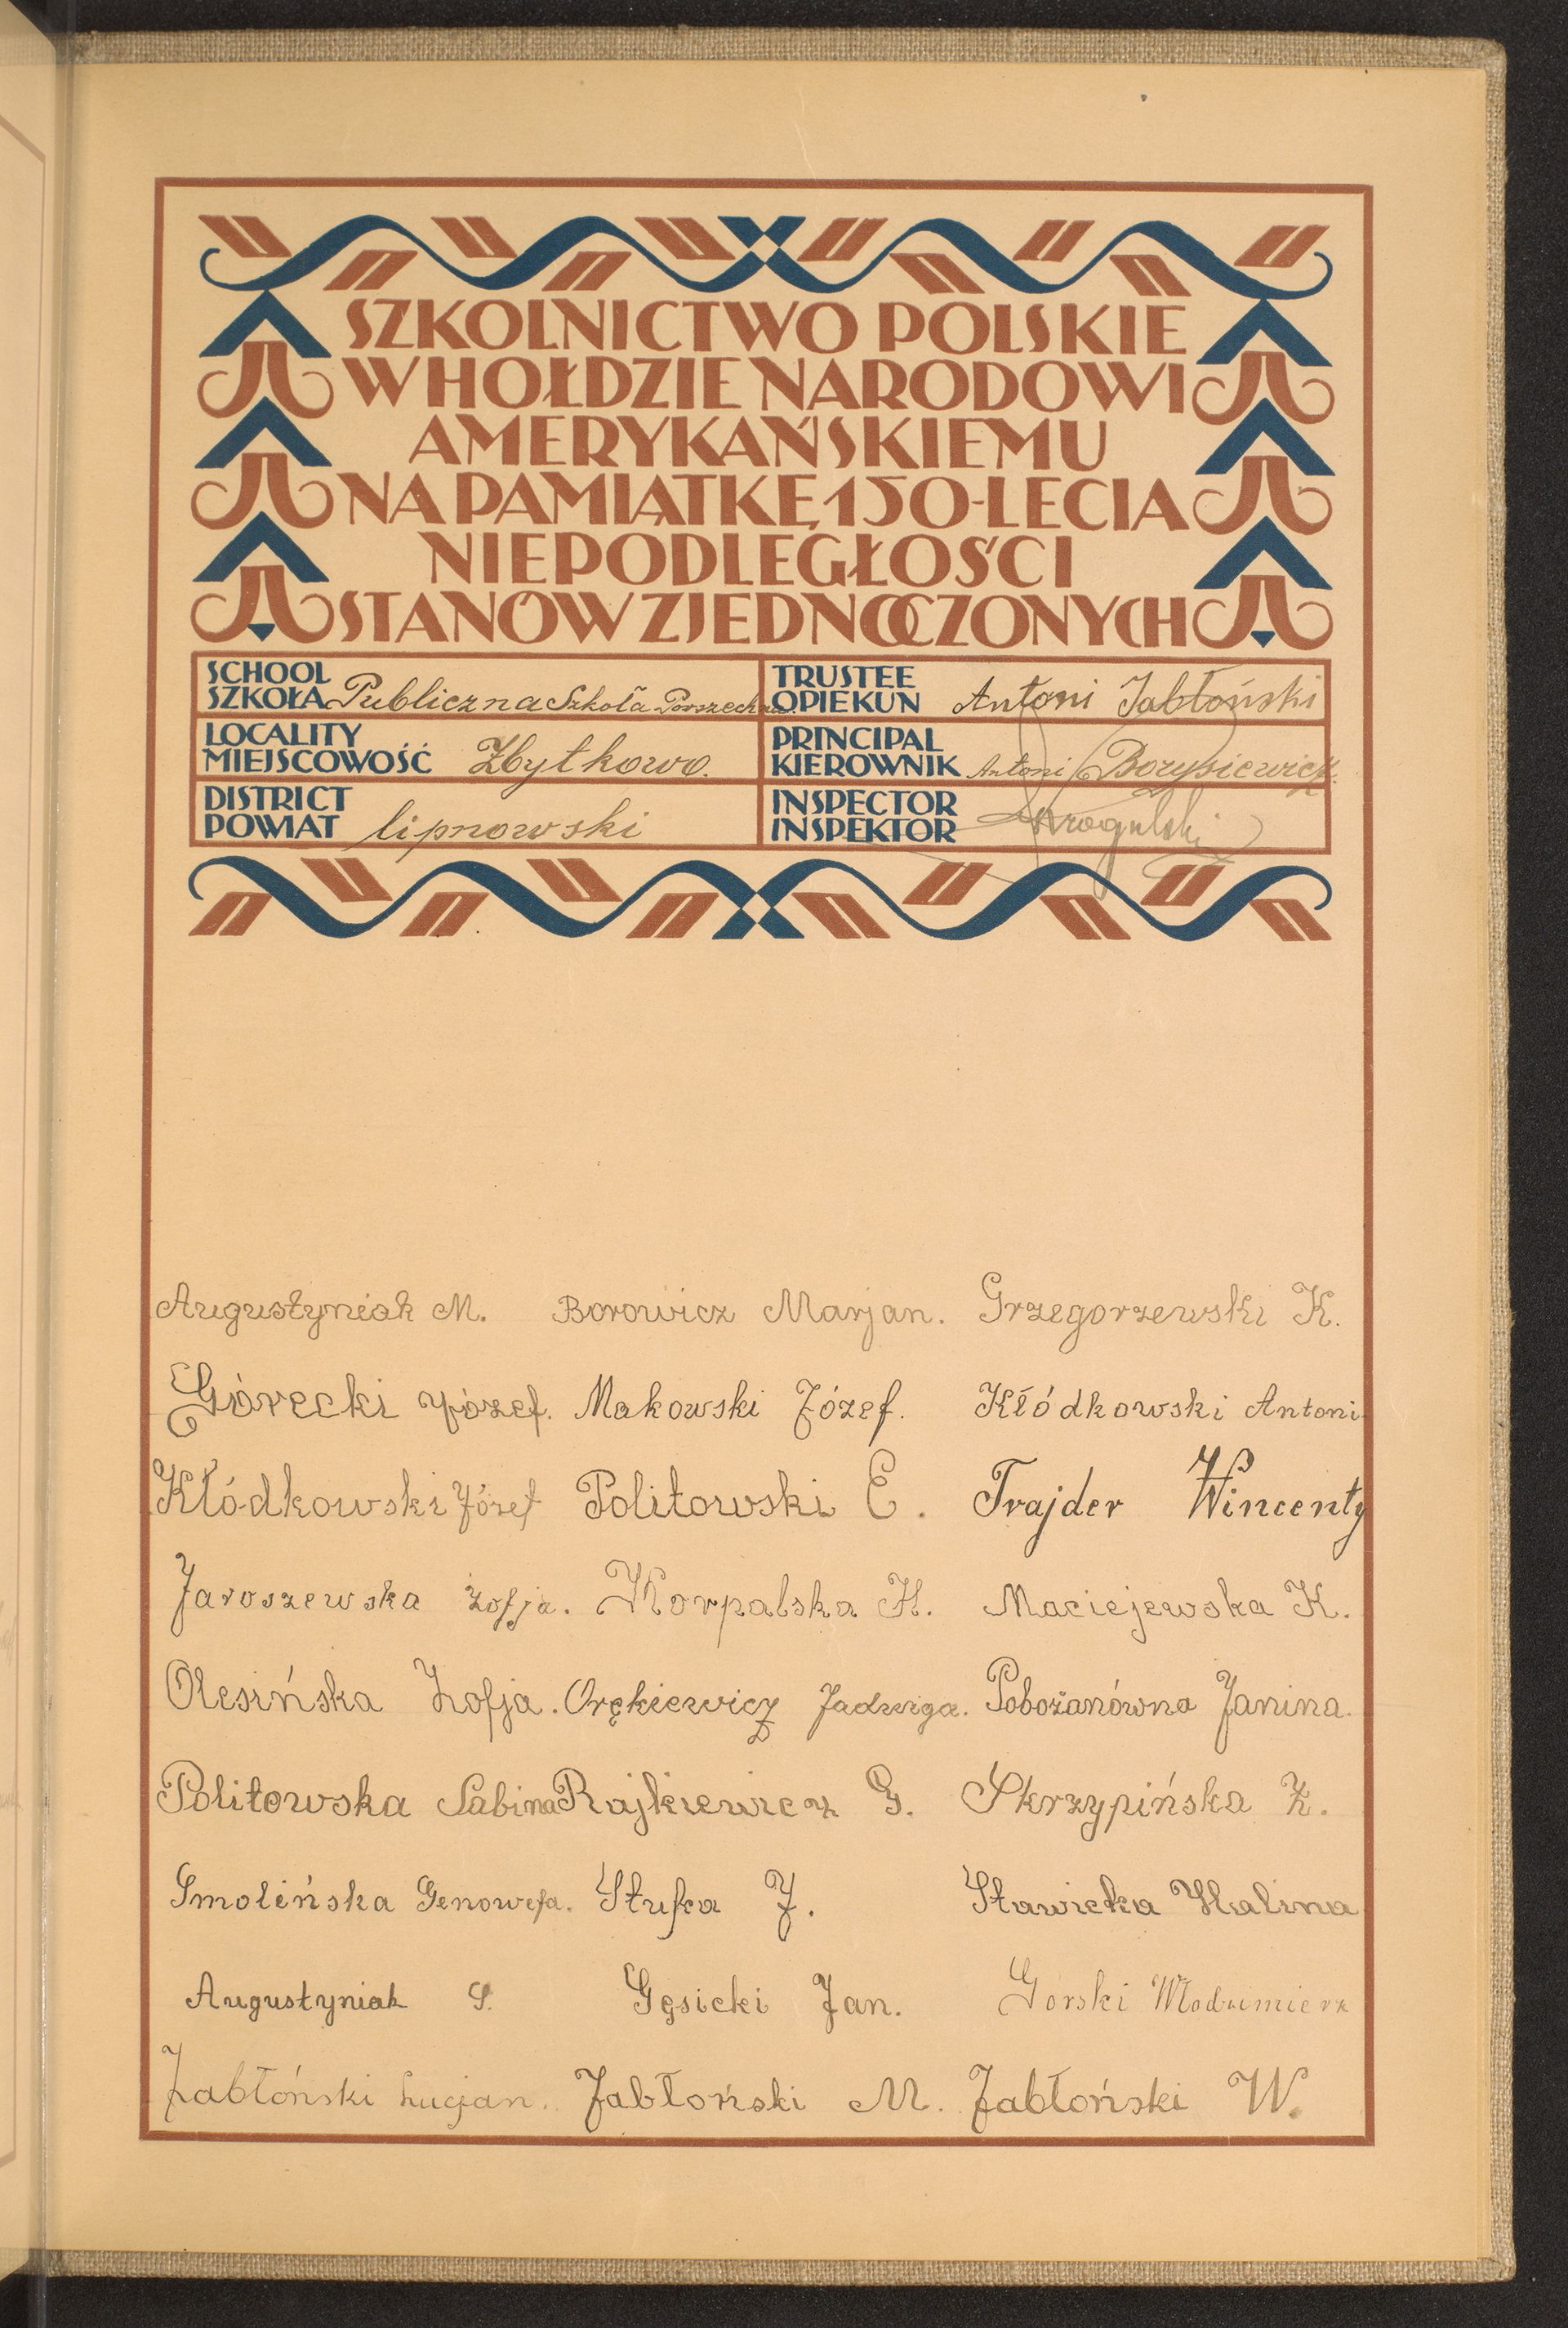 SZKOLNICTWO POLSKIE
W HOŁDZIE NARODOWI
AMERYKAŃSKIEMU
NA PAMIĄTKĘ 150-LECIA
NIEPODLEGŁOŚCI
STANÓW ZJEDNOCZONYCH
SCHOOL
SZKOŁA Publiczna Szkoła Powszechna
LOCALITY
MIEJSCOWOŚĆ Zbytkowo.
DISTRICT
POWIAT lipnowski
TRUSTEE
OPIEKUN Antoni Jabłoński
PRINCIPAL
KIEROWNIK Antoni Borysiewicz
INSPECTOR
INSPEKTOR
Augustyniak M. Borowicz Marjan. Grzegorzewski K.
Górecki Józef. Makowski Józef. Kłódkowski Antoni
Kłódkowski Józef Politowski E. Trajder Wincenty
Jaroszewska Zofja. Korpalska H. Maciejewska K.
Olesińska Zofja. Orękiewicz Jadwiga. Pobożanówna Janina.
Politowska Sabina Rajkiewicz G. Skrzypińska Z.
Smolińska Genowefa. Stufka J. Stawicka Halina
Augustyniak S. Gęsicki Jan. Górski Włodzimierz
Jabłoński Lucjan. Jabłoński M. Jabłoński W.